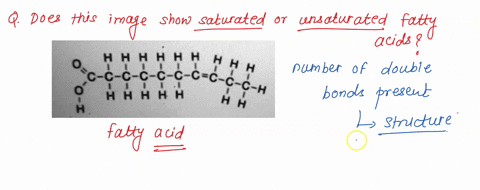 Q. Does this image show saturated or unsaturated fatty
acids?
H H H H H H H
O
C-C-C-C-C-C-C=C-C-C-H
O H H H H H H H
H
fatty acid
number of double
bonds present
↳ structure